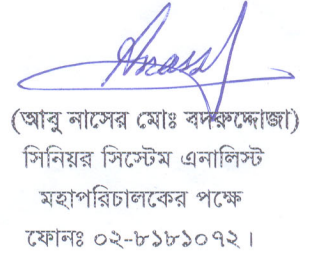 (আবু নাসের মোঃ বদরুদ্দোজা)
সিনিয়র সিস্টেম এনালিস্ট
মহাপরিচালকের পক্ষে
ফোনঃ ০২-৮১৮১০৭২।